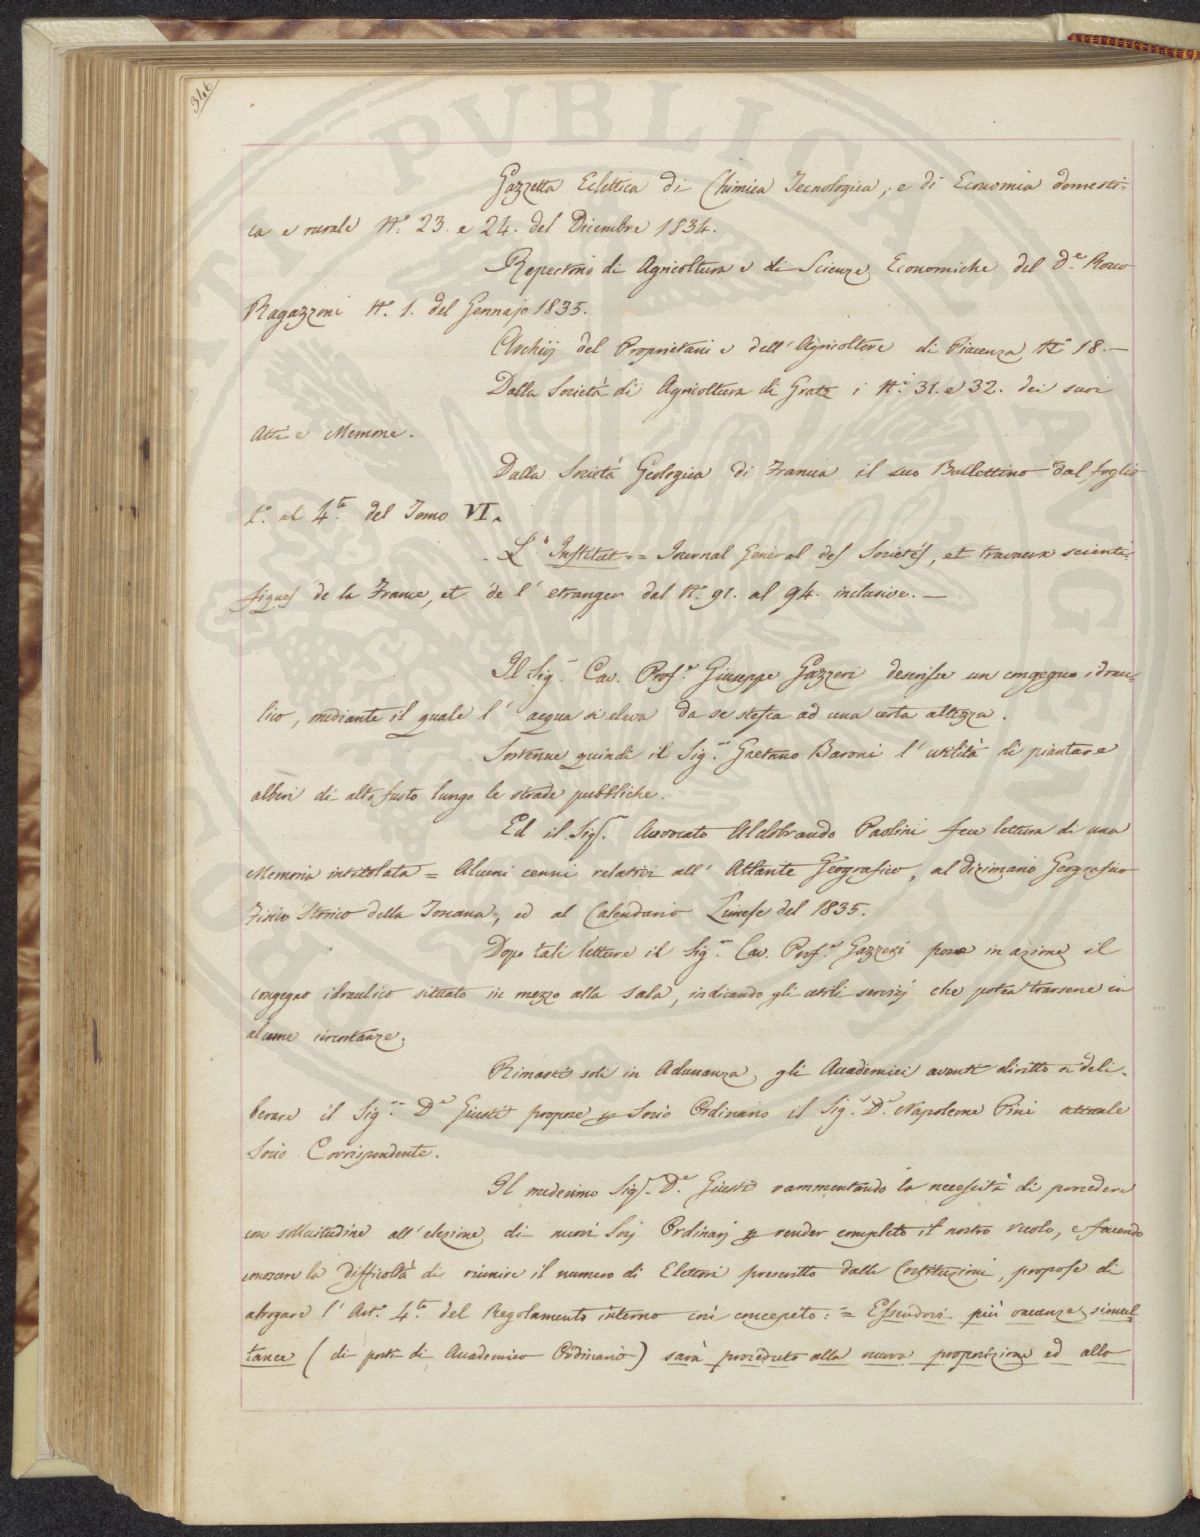 346
Gazzetta Eclettica di Chimica Tecnologica, e di Economia domesti=
ca e rurale N.° 23. e 24. del Dicembre 1834.
Repertorio di Agricoltura e di Scienze Economiche del D.e Rocco
Ragazzoni N.° 1. del Gennajo 1835.
Archivj del Proprietario e dell'Agricoltore di Piacenza N.° 18.—
Dalla Società di Agricoltura di Gratz i N.i 31. e 32. dei suoi
Atti e Memorie.
Dalla Società Geologica di Francia il suo Bullettino dal foglio
1.° al 4.to del Tomo VI.
L'Institut = Journal General des Societés, et travaux scienti=
fiques de la France, et de l'etranger dal N.° 91. al 94. inclusive.—
Il Sig.r Cav. Prof.re Giuseppe Gazzeri descrisse un congegno idrau=
lico, mediante il quale l'acqua si eleva da se stessa ad una certa altezza.
Sostenne quindi il Sig.r Gaetano Baroni l'utilità di piantare
alberi di alto fusto lungo le strade pubbliche.
Ed il Sig.r Avvocato Aldobrando Paolini fece lettura di una
Memoria intitolata = Alcuni cenni relativi all'Atlante Geografico, al Dizionario Geografico
Fisico Storico della Toscana, ed al Calendario Lunese del 1835.
Dopo tali letture il Sig.r Cav. Prof.re Gazzeri pose in azione il
congegno idraulico situato in mezzo alla sala, indicando gli utili servizj che potea trarsene in
alcune circostanze.
Rimasti soli in Adunanza gli Accademici aventi diritto a deli=
berare il Sig.r D.e Giusti propose p Socio Ordinario il Sig.r D.r Napoleone Pini attuale
Socio Corrispondente.
Il medesimo Sig.r D.e Giusti rammentando la necessità di procedere
con sollecitudine all'elezione di nuovi Socj Ordinarj p render completo il nostro ruolo, e facendo
conoscere la difficoltà di riunire il numero di Elettori prescritto dalle Costituzioni, propose di
abrogare l'Art.° 4.to del Regolamento interno così concepito: = Essendovi più vacanze simul=
tanee (di posti di Accademico Ordinario) sarà proceduto alla nuova proposizione ed allo